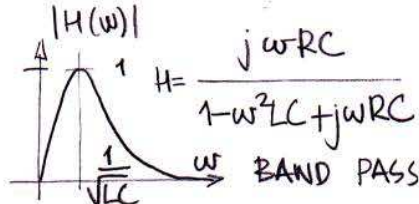 |H(ω)|
1
H= jωRC / 1-ω²LC+jωRC
1/√LC
ω
BAND PASS